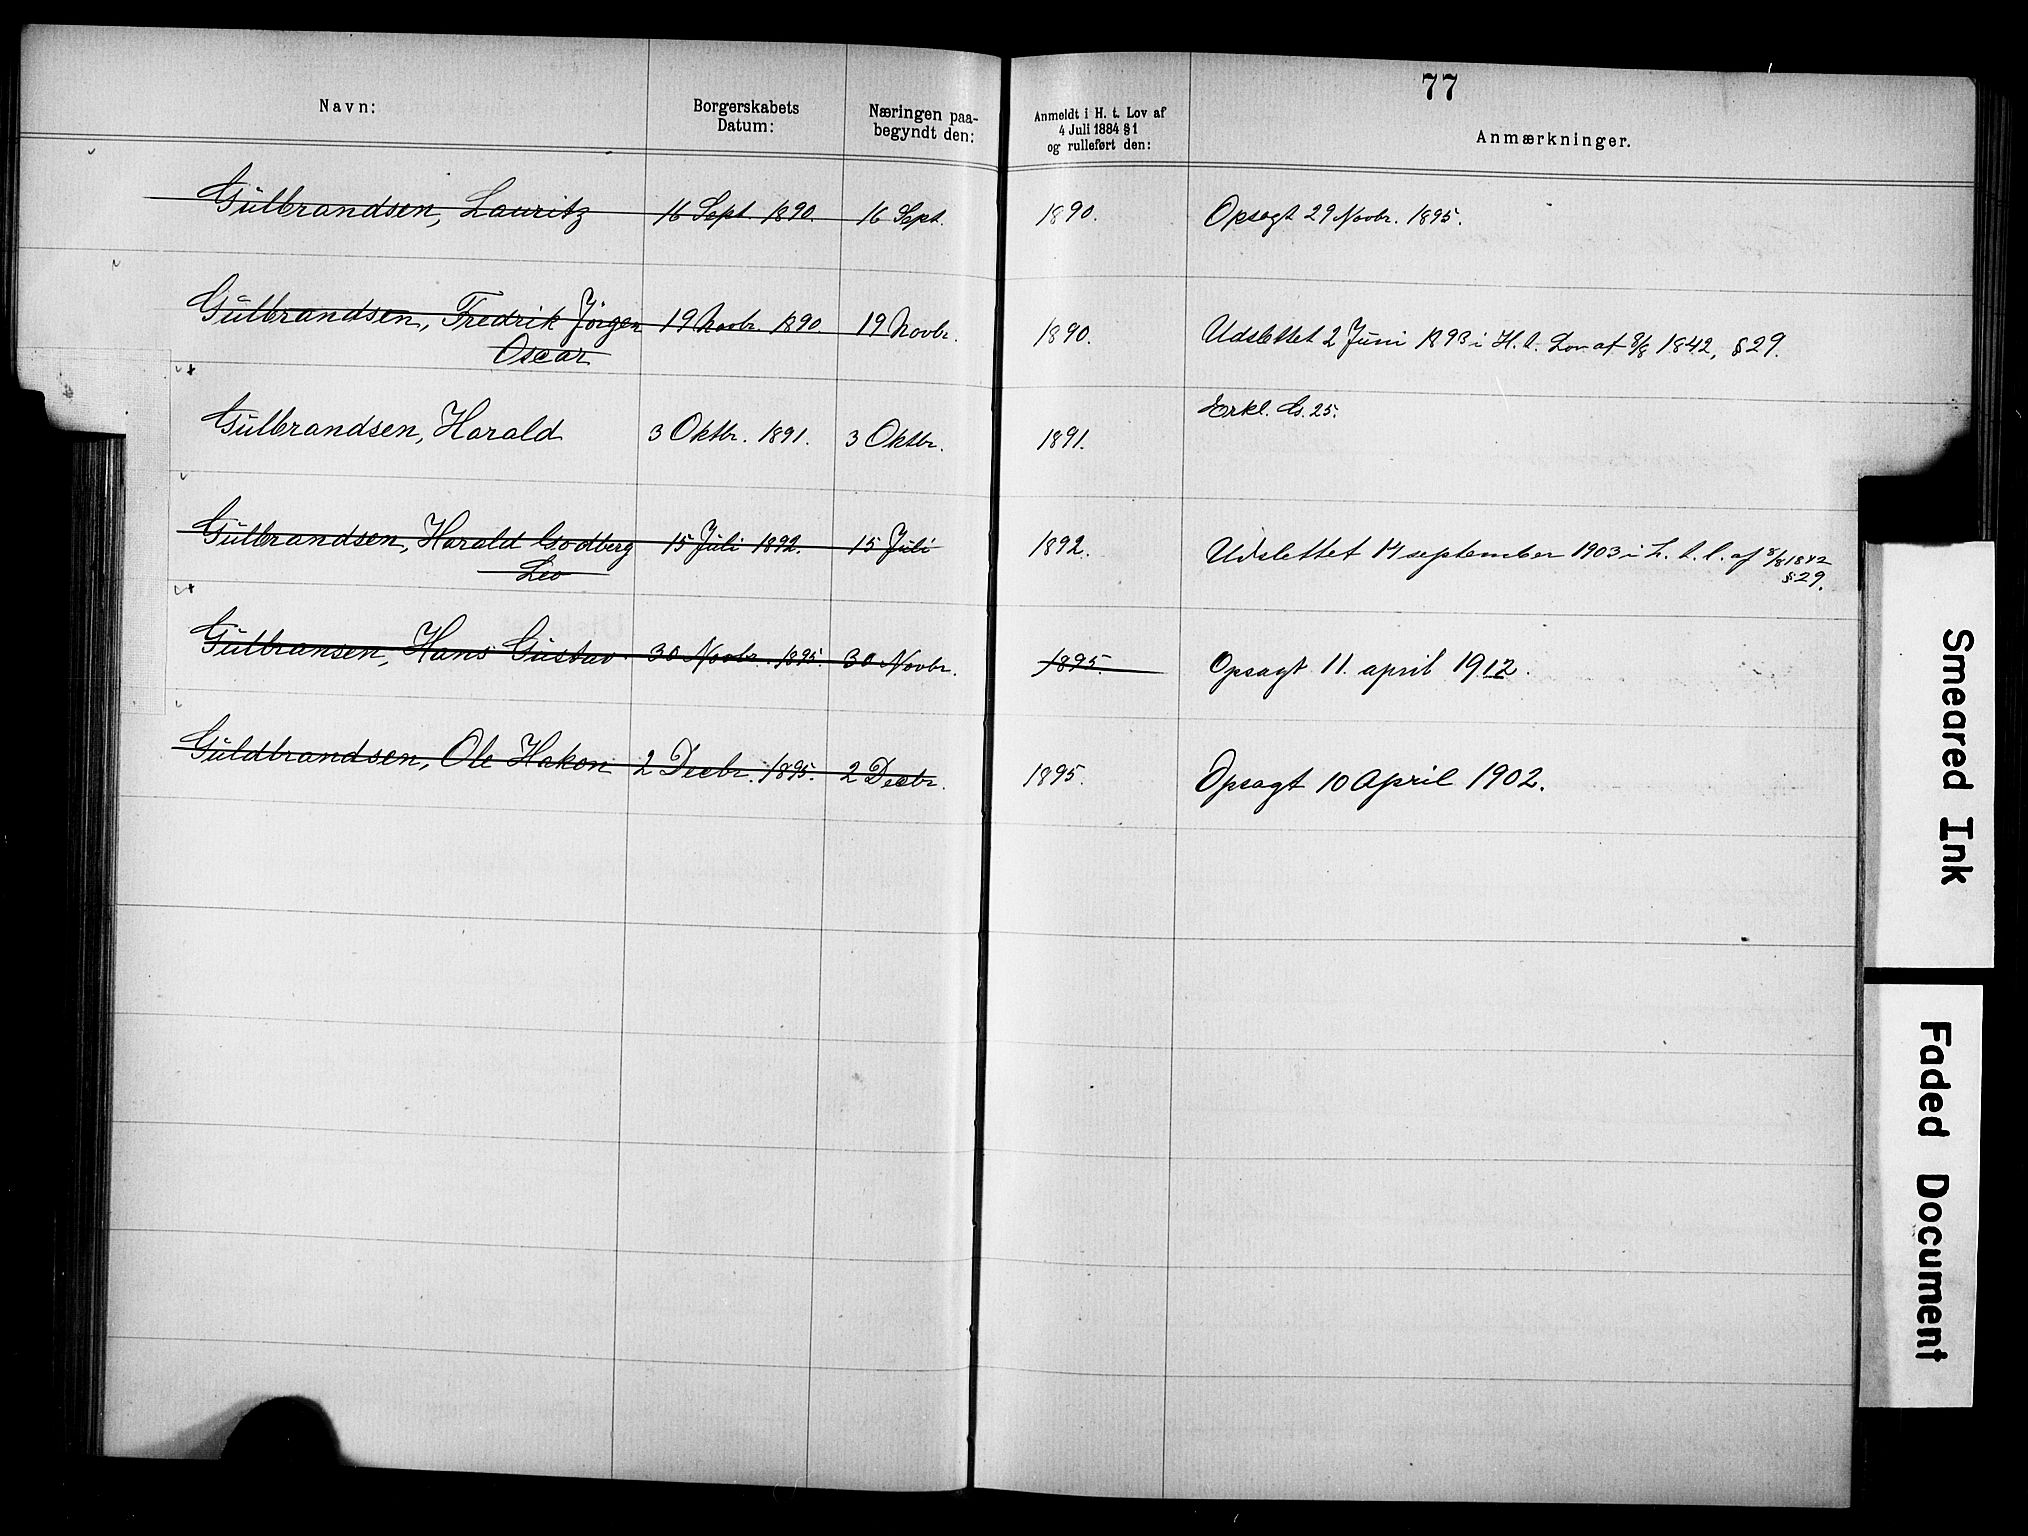 77
Navn: Borgerskabets Datum: Næringen paa-begyndt den: Anmeldt i H. t. Lov af 4 Juli 1884 § 1 og rulleført den: Anmærkninger.
Gulbrandsen, Lauritz 16 Sept 1890. 16 Sept. 1890. Opsagt 29 Novbr. 1895.
Gulbrandsen, Fredrik Jörgen 19 Novbr. 1890. 19 Novbr. 1890. Udslettet 2 Juni 1893 i H. t. Lov af 8/8 1842, § 29.
Oscar
Erkl. G. 25.
Gulbrandsen, Harald 3 Oktbr. 1891. 3 Oktbr. 1891.
Gulbrandsen, Harald Godberg 15 Juli 1892. 15 Juli 1892. Udslettet 14 september 1903 i h. t. l. af 8/8 1842
Leo § 29.
Gulbransen, Hans Gustav. 30 Novbr. 1895. 30 Novbr. 1895. Opsagt 11. april 1912.
Guldbrandsen, Ole Hakon 2 Decbr. 1895. 2 Decbr. 1895. Opsagt 10 April 1902.
Smeared Ink
Faded Document